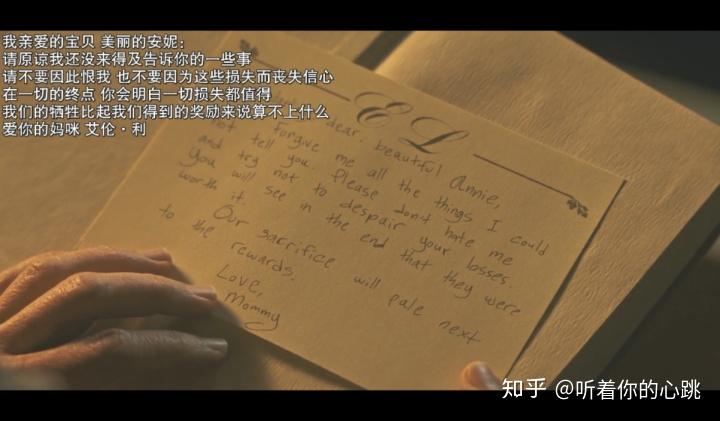 我亲爱的宝贝 美丽的安妮：
请原谅我还没来得及告诉你的一些事
请不要因此恨我 也不要因为这些损失而丧失信心
在一切的终点 你会明白一切损失都值得
我们的牺牲比起我们得到的奖励来说算不上什么
爱你的妈咪 艾伦·利
EL
dear, beautiful Annie,
forgive me all the things I could
not tell you. Please don't hate me
and try not to despair your losses
You will see in the end that they were
worth it.
Our sacrifice will pale next
to the rewards.
Love,
Mommy
知乎 @听着你的心跳